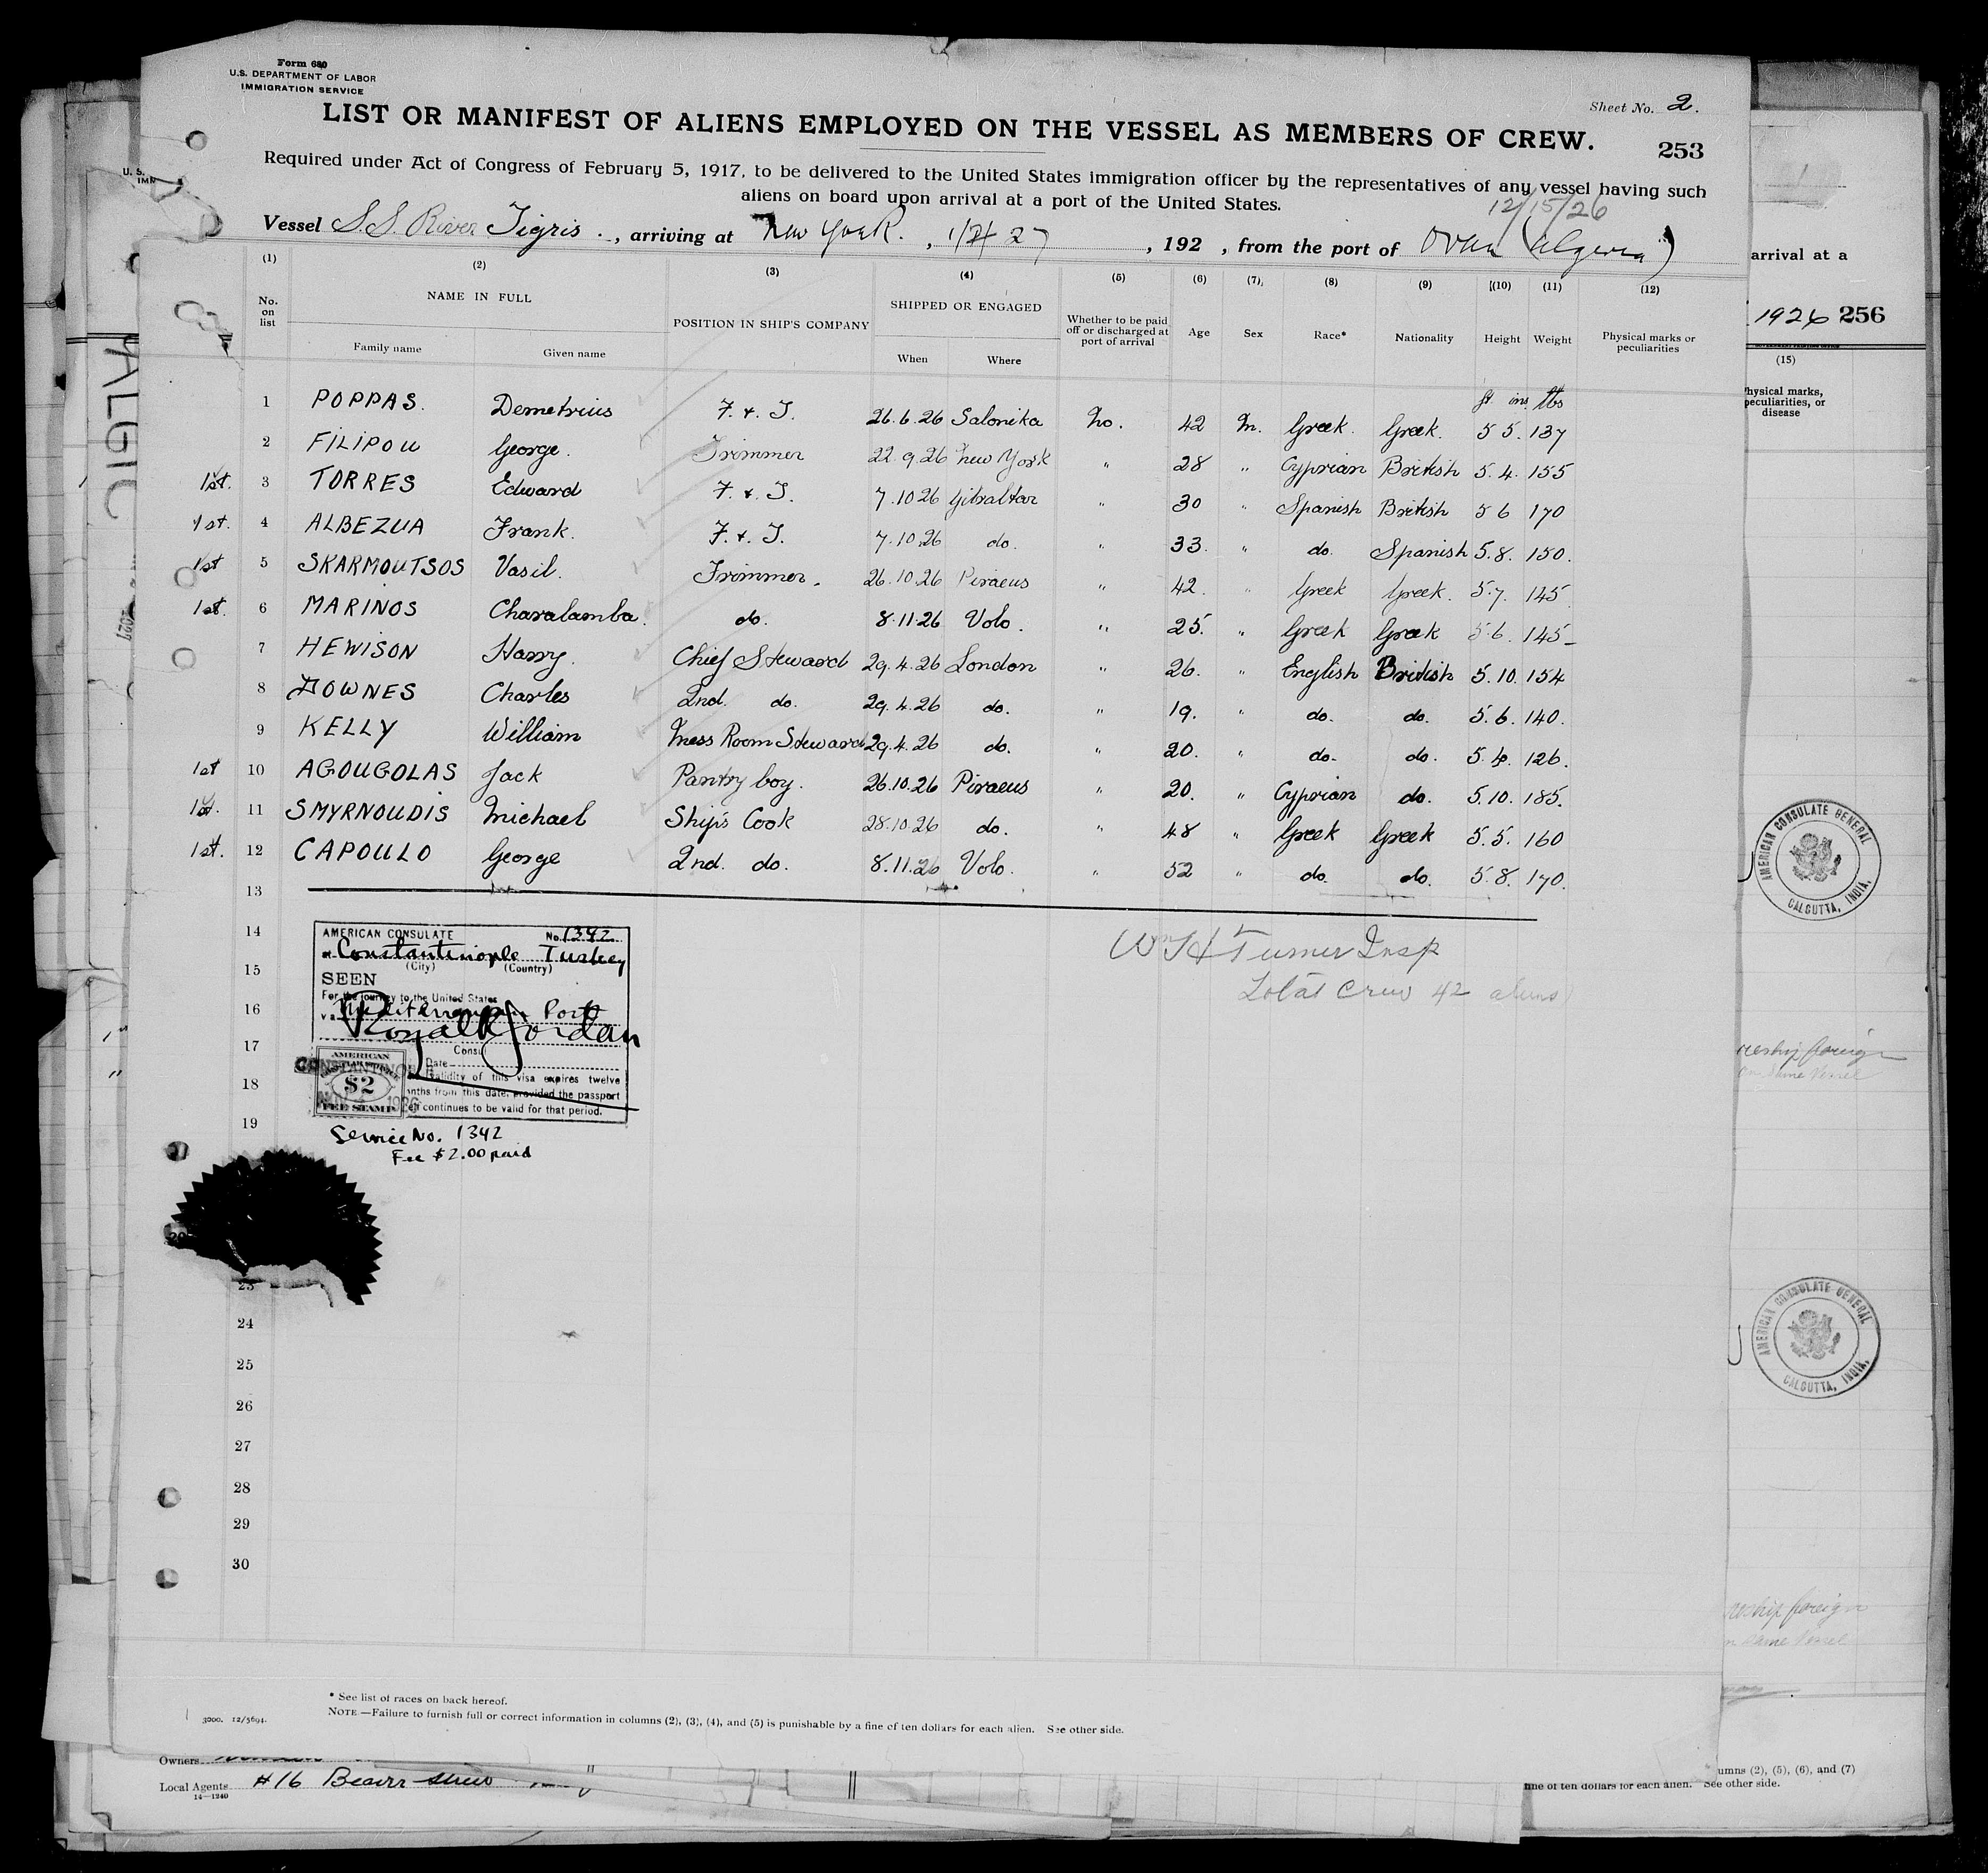 Form 680
U.S. DEPARTMENT OF LABOR
IMMIGRATION SERVICE
Sheet No. 2.
LIST OR MANIFEST OF ALIENS EMPLOYED ON THE VESSEL AS MEMBERS OF CREW.
253
Required under Act of Congress of February 5, 1917, to be delivered to the United States immigration officer by the representatives of any vessel having such
aliens on board upon arrival at a port of the United States.
12/15/26
Vessel S.S. River Tigris, arriving at New York, 1/4 27, 192 , from the port of Oran (Algeria)
(1) (2) (3) (4) (5) (6) (7) (8) (9) (10) (11) (12)
No. on list NAME IN FULL POSITION IN SHIP'S COMPANY SHIPPED OR ENGAGED Whether to be paid off or discharged at port of arrival Age Sex Race* Nationality Height Weight Physical marks or peculiarities
Family name Given name When Where
ft ins lbs
1 POPPAS. Demetrius F. & T. 26.6.26 Salonika No. 42 M. Greek. Greek. 5 5. 137
2 FILIPOU George. Trimmer 22.9.26 New York " 28 " Cyprian British 5.4. 155
1st. 3 TORRES Edward F. & T. 7.10 26 Gibraltar " 30 " Spanish British 5 6 170
1st. 4 ALBEZUA Frank. F. & T. 7.10.26 do. " 33. " do. Spanish 5.8. 150.
1st 5 SKARMOUTSOS Vasil. Trimmer. 26.10.26 Piraeus " 42. " Greek Greek. 5.7. 145
1st. 6 MARINOS Charalamba. do. 8.11.26 Volo. " 25. " Greek Greek 5.6. 145
7 HEWISON Harry. Chief Steward 29.4.26 London " 26. " English British 5.10. 154
8 DOWNES Charles 2nd. do. 29.4.26 do. " 19. " do. do. 5.6. 140.
9 KELLY William Mess Room Steward 29.4.26 do. " 20. " do. do. 5.4. 126.
1st 10 AGOUGOLAS Jack Pantry boy. 26.10.26 Piraeus " 20. " Cyprian do. 5.10. 185.
1st. 11 SMYRNOUDIS Michael Ship's Cook 28.10.26 do. " 48 " Greek Greek 5.5. 160
1st. 12 CAPOULO George 2nd. do. 8.11.26 Volo. " 52 " do. do. 5.8. 170.
13
14
15
16
17
18
19
AMERICAN CONSULATE No. 1342
at Constantinople Turkey
(City) (Country)
SEEN
For the journey to the United States
via Mediterranean Port
Royal R Jordan
Consul
Date
validity of this visa expires twelve
months from this date, provided the passport
continues to be valid for that period.
AMERICAN
CONSTANTINOPLE
$2
1926
FEE STAMP
Service No. 1342
Fee $2.00 paid
Wm H Turner Insp
Total Crew 42 aliens
23
24
25
26
27
28
29
30
* See list of races on back hereof.
NOTE.—Failure to furnish full or correct information in columns (2), (3), (4), and (5) is punishable by a fine of ten dollars for each alien. See other side.
3000. 12/5694.
Owners
Local Agents #16 Beaver
14—1240
U. S.
arrival at a
1926 256
(15)
Physical marks, peculiarities, or disease
AMERICAN CONSULATE GENERAL
CALCUTTA, INDIA.
reship foreign
on same Vessel
AMERICAN CONSULATE GENERAL
CALCUTTA, INDIA.
reship foreign
n same Vessel
umns (2), (5), (6), and (7)
fine of ten dollars for each alien. See other side.